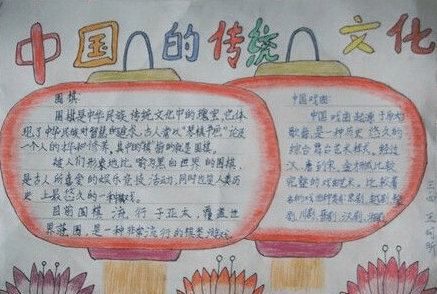 中国的传统文化
围棋:
围棋是中华民族传统文化中的瑰宝,它体
现了中华民族对智慧的追求,古人常以"琴棋书画"论及
一个人的才华和修养,其中的"棋"指的就是围棋。
被人们形象地比喻为黑白世界的围棋,
是古人所喜爱的娱乐竞技活动,同时也是人类历
史上最悠久的一种棋戏。
目前围棋流行于亚太,覆盖世
界范围,是一种非常流行的棋类游戏
中国戏曲:
中国戏曲起源于原始
歌舞,是一种历史悠久的
综合舞台艺术样式。经过
汉、唐到宋、金才形成比较
完整的戏曲艺术。比较著
名的戏曲种类有:京剧、